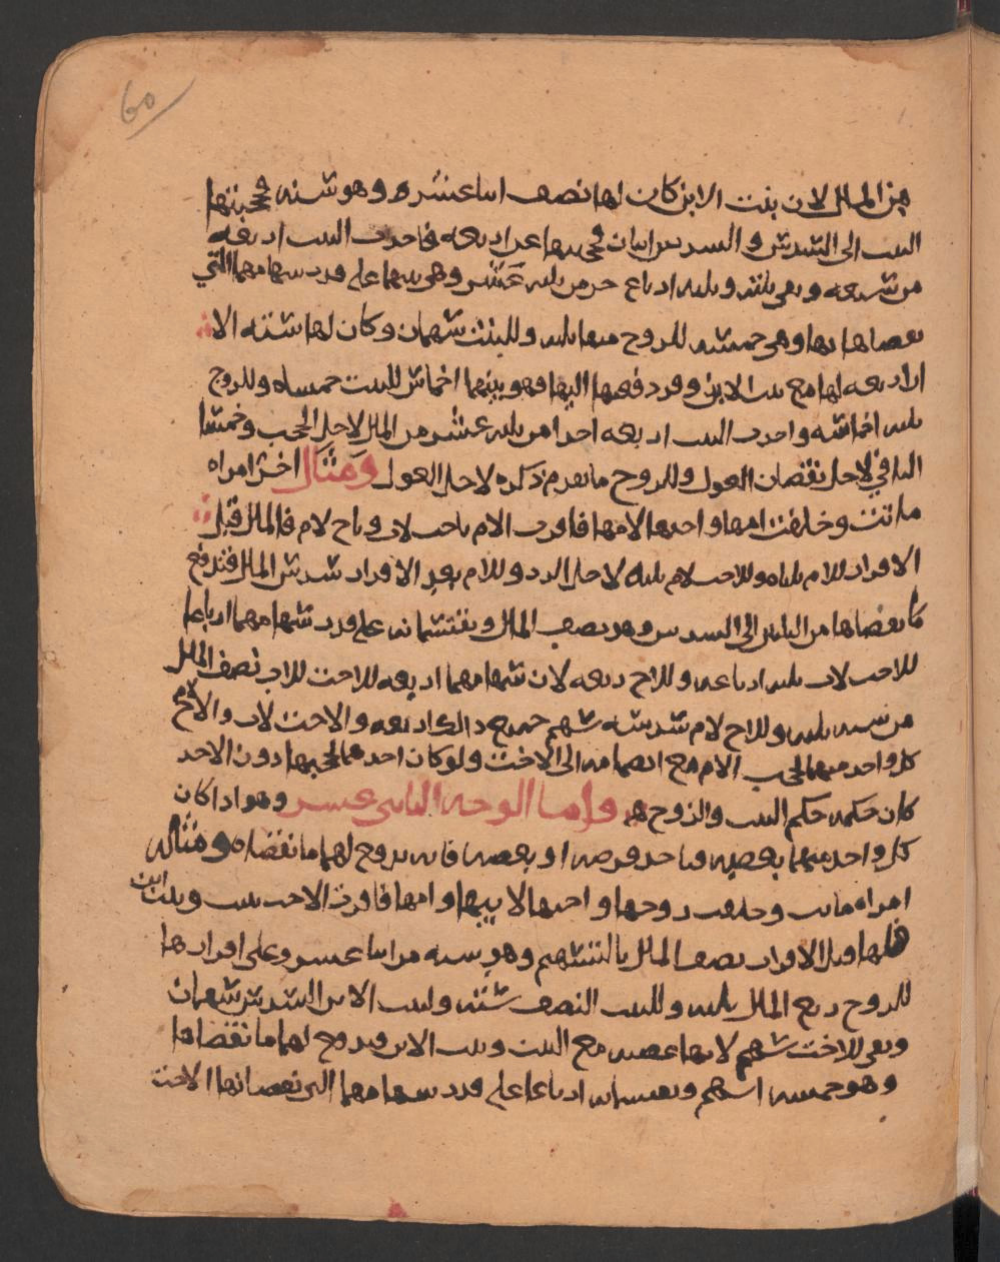 60
من المال لان بنت الابن كان لها نصف اثنا عشر وهو سته فحجبتها
البنت الى السدس والسدس اثنان فحجبها عن اربعه فاحرت البنت اربعه
من تسعه وبقى ثلثه وثلثه ارباع جز من ثلثه عشر وهى بينهما على قدر سهامهما التى
نقصاها بها وهى خمسه للزوج منها ثلثه وللبنت سهمان وكان لها سته الا
ان اربعه لها مع بنت الابن وقد دفعها اليها فهو بينهما اخماس للبنت خمساه وللزوج
ثلثه اخماسه واحرت البنت اربعه اجزا من ثلثه عشر من المال لاجل الحجب وخمسا
الباقي لاجل نقصان العول وللزوج ما تقدم ذكره لاجل العول ومثال اخر امراه
ماتت وخلفت امها واختها لامها فاقرت الام باخت لاب وباخ لام فالمال قبل
الاقرار للام ثلثاه وللاخت لام ثلثه لاجل الرد وللام بعد الاقرار سدس المال فتدفع
ما نقصاها من الثلثين الى السدس وهو نصف المال ويقتسمانه على قدر سهامهما ارباعا
للاخت لاب ثلثه ارباعه وللاخ ربعه لان سهامهما اربعه للاخت للاب نصف المال
من سته ثلثه وللاخ لام سدسه سهم جميع ذلك اربعه والاخت لاب والاخ لام
كل واحد منهما يحجب الام مع انضمامه الى الاخت ولو كان احدهما يحجبها دون الاخر
كان حكمه حكم البنت والزوج واما الوجه الثانى عشر وهو اذا كان
كل واحد منهما بعصبه وياخذ فرضه او بعصبه فانه يدفع لهما ما نقصاه ومثاله
امراه ماتت وخلفت زوجها واختها لابيها وامها فاقرت الاخت ببنت وبنت ابن
فلها قبل الاقرار نصف المال بالتسهيم وهو سته من اثنا عشر وعلى اقرارها
للزوج ربع المال ثلثه وللبنت النصف سته ولبنت الابن السدس سهمان
وبقى للاخت سهم لانها عصبه مع البنت وبنت الابن فيدفع لهما ما نقصاها
وهو خمسه اسهم ويقتسمانه ارباعا على قدر سهامهما التى نقصانها الاخت